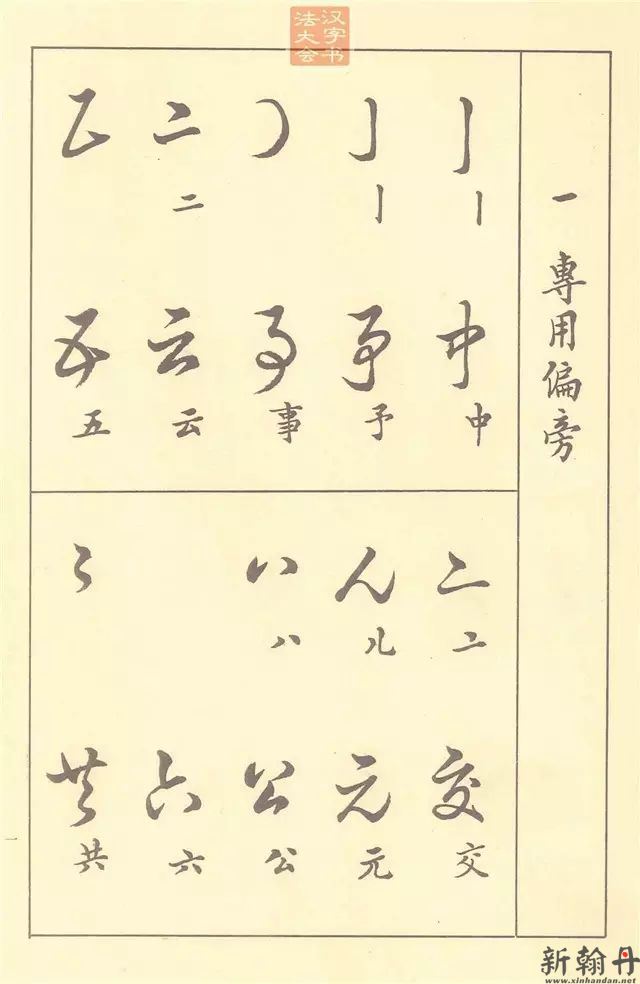 汉字书
法大会
一 專用偏旁
丨 丨 中 中
亅 亅 予 予
事 事
二 二 云 云
五 五
亠 亠 交 交
儿 儿 元 元
八 八 公 公
六 六
共 共
一
新翰丹
www.xinhandan.net